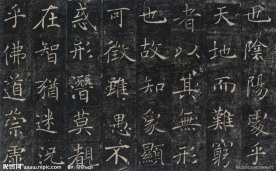 也陰陽處乎
天地而難窮
者以其無形
也故知象顯
可徵雖愚不
惑形潛莫覩
在智猶迷況
乎佛道崇虛
昵图网 www.nipic.com